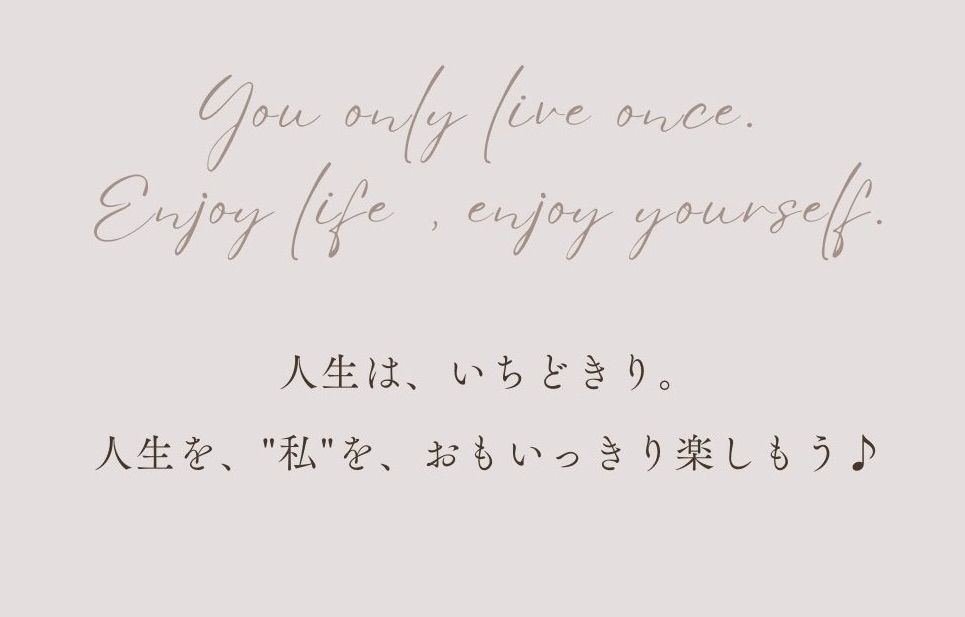 You only live once.
Enjoy life , enjoy yourself.
人生は、いちどきり。
人生を、"私"を、おもいっきり楽しもう♪